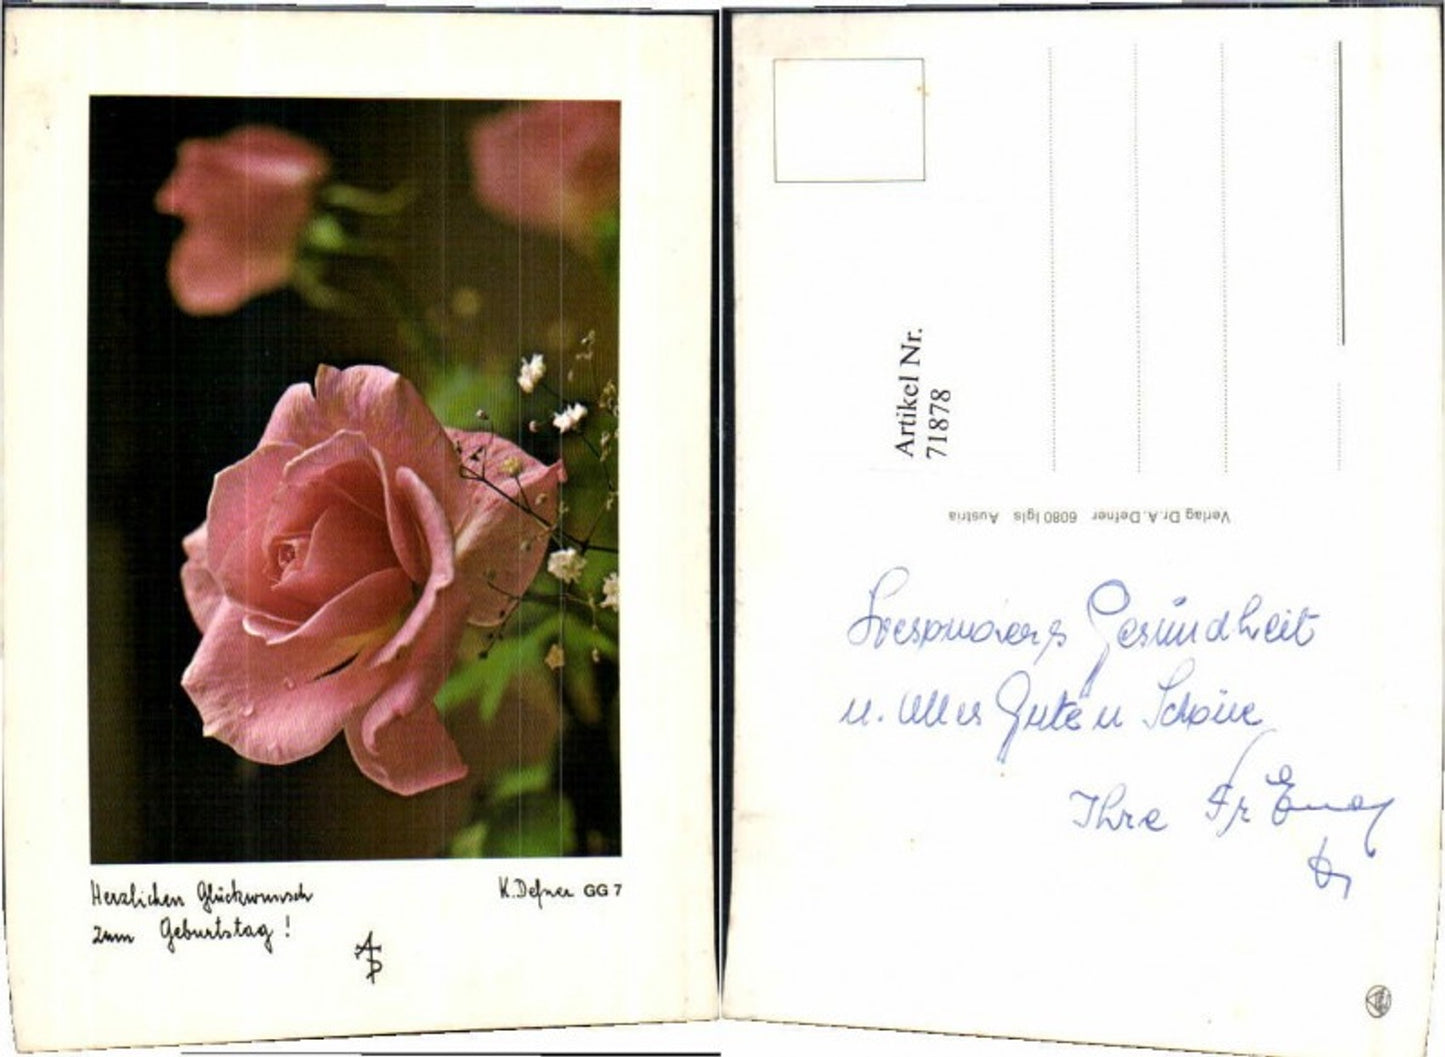 Herzlichen Glückwunsch
zum Geburtstag!
K. Defner GG 7
Artikel Nr.
71878
Verlag Dr. A. Defner 6080 Igls Austria
Gesundheit
u. Alles Gute u Schöne
Ihre Fr